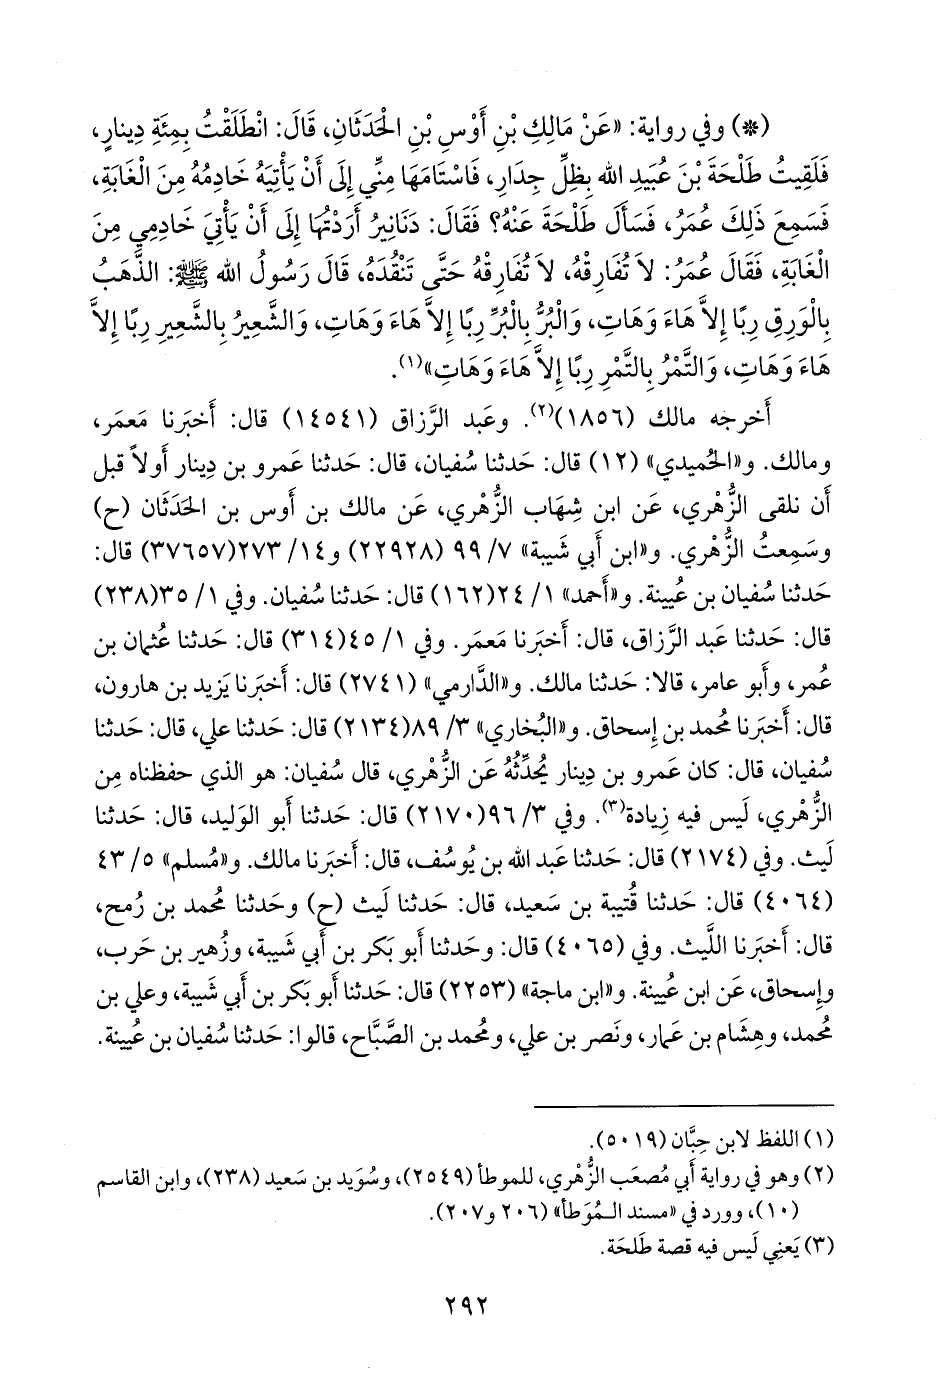 (*) وفي رواية: «عَنْ مَالِكِ بْنِ أَوْسِ بْنِ الْحَدَثَانِ، قَالَ: انْطَلَقْتُ بِمِئَةِ دِينارٍ،
فَلَقِيتُ طَلْحَةَ بْنَ عُبَيدِ الله بِظِلِّ جِدَارٍ، فَاسْتَامَهَا مِنِّي إِلَى أَنْ يَأْتِيَهُ خَادِمُهُ مِنَ الْغَابَةِ،
فَسَمِعَ ذَلِكَ عُمَرُ، فَسَأَلَ طَلْحَةَ عَنْهُ؟ فَقَالَ: دَنَانِيرُ أَرَدْتُهَا إِلَى أَنْ يَأْتِيَ خَادِمِي مِنَ
الْغَابَةِ، فَقَالَ عُمَرُ: لاَ تُفَارِقْهُ، لاَ تُفَارِقْهُ حَتَّى تَنْقُدَهُ، قَالَ رَسُولُ الله ﷺ: الذَّهَبُ
بِالْوَرِقِ رِبًا إِلاَّ هَاءَ وَهَاتِ، وَالْبُرُّ بِالْبُرِّ رِبًا إِلاَّ هَاءَ وَهَاتِ، وَالشَّعِيرُ بِالشَّعِيرِ رِبًا إِلاَّ
هَاءَ وَهَاتِ، وَالتَّمْرُ بِالتَّمْرِ رِبًا إِلاَّ هَاءَ وَهَاتِ»(١).
أَخرجه مالك (١٨٥٦)(٢). وعَبد الرَّزاق (١٤٥٤١) قال: أَخبَرنا مَعمَر،
ومالك. و«الحُميدي» (١٢) قال: حَدثنا سُفيان، قال: حَدثنا عَمرو بن دِينار أَولاً قبل
أَن نلقى الزُّهْري، عَن ابن شِهَاب الزُّهْري، عَن مالك بن أَوس بن الحَدَثَان (ح)
وسَمِعتُ الزُّهْري. و«ابن أَبي شَيبة» ٧/ ٩٩ (٢٢٩٢٨) و١٤/ ٢٧٣(٣٧٦٥٧) قال:
حَدثنا سُفيان بن عُيينة. و«أَحمد» ١/ ٢٤(١٦٢) قال: حَدثنا سُفيان. وفي ١/ ٣٥(٢٣٨)
قال: حَدثنا عَبد الرَّزاق، قال: أَخبَرنا مَعمَر. وفي ١/ ٤٥(٣١٤) قال: حَدثنا عُثمان بن
عُمر، وأَبو عامر، قالا: حَدثنا مالك. و«الدَّارمي» (٢٧٤١) قال: أَخبَرنا يَزيد بن هارون،
قال: أَخبَرنا مُحمد بن إِسحاق. و«البُخاري» ٣/ ٨٩(٢١٣٤) قال: حَدثنا علي، قال: حَدثنا
سُفيان، قال: كان عَمرو بن دِينار يُحَدِّثُهُ عَن الزُّهْري، قال سُفيان: هو الذي حفظناه مِن
الزُّهْري، لَيس فيه زِيادة(٣). وفي ٣/ ٩٦(٢١٧٠) قال: حَدثنا أَبو الوَليد، قال: حَدثنا
لَيث. وفي (٢١٧٤) قال: حَدثنا عَبد الله بن يُوسُف، قال: أَخبَرنا مالك. و«مُسلم» ٥/ ٤٣
(٤٠٦٤) قال: حَدثنا قُتيبة بن سَعيد، قال: حَدثنا لَيث (ح) وحَدثنا مُحمد بن رُمح،
قال: أَخبَرنا اللَّيث. وفي (٤٠٦٥) قال: وحَدثنا أَبو بَكر بن أَبي شَيبة، وزُهير بن حَرب،
وإِسحاق، عَن ابن عُيينة. و«ابن ماجة» (٢٢٥٣) قال: حَدثنا أَبو بَكر بن أَبي شَيبة، وعلي بن
مُحمد، وهِشَام بن عَمار، ونَصر بن علي، ومُحمد بن الصَّبَّاح، قالوا: حَدثنا سُفيان بن عُيينة.
(١) اللفظ لابن حِبَّان (٥٠١٩).
(٢) وهو في رواية أَبي مُصعَب الزُّهْري، للموطأ (٢٥٤٩)، وسُوَيد بن سَعيد (٢٣٨)، وابن القاسم
(١٠)، وورد في «مسند الـمُوَطأ» (٢٠٦ و٢٠٧).
(٣) يَعنِي لَيس فيه قصة طَلحَة.
٢٩٢